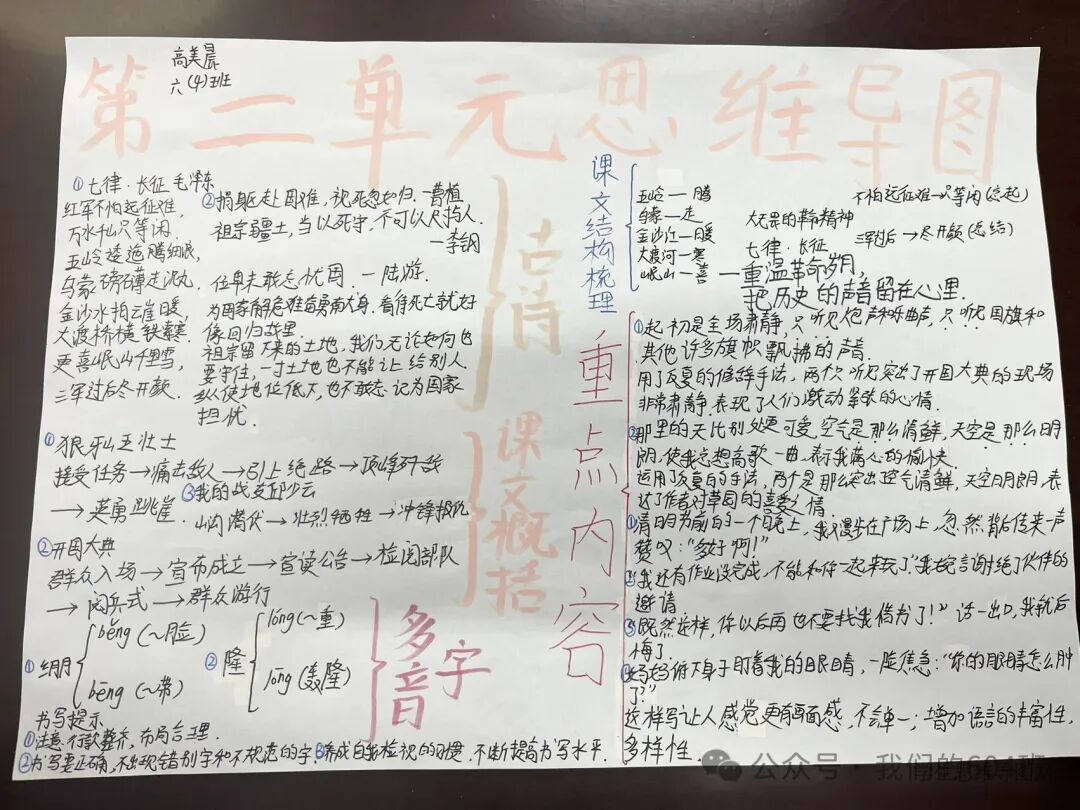 高美晨
六(4)班
第二单元思维导图
①七律·长征 毛泽东
红军不怕远征难,
万水千山只等闲.
五岭逶迤腾细浪,
乌蒙磅礴走泥丸.
金沙水拍云崖暖,
大渡桥横铁索寒.
更喜岷山千里雪,
三军过后尽开颜.
②捐躯赴国难,视死忽如归.—曹植
祖宗疆土,当以死守,不可以尺寸与人.
—李纲
位卑未敢忘忧国 —陆游.
为国家解危难奋勇献身.看待死亡就好
像回归故里.
祖宗留下来的土地,我们无论如何也
要守住,一寸土地也不能让给别人
纵使地位低下,也不敢忘记为国家
担忧.
古诗
①狼牙山五壮士
接受任务→痛击敌人→引上绝路→顶峰歼敌
→英勇跳崖
③我的战友邱少云
山沟潜伏→壮烈牺牲→冲锋报仇
②开国大典
群众入场→宣布成立→宣读公告→检阅部队
→阅兵式→群众游行
课文概括
①绷
běng(~脸)
bēng(~带)
②隆
lóng(~重)
lōng(轰隆)
多音字
书写提示
①注意行款整齐,布局合理.
②书写要正确,不出现错别字和不规范的字.③养成自我检视的习惯,不断提高书写水平.
课文结构梳理
五岭—腾
乌蒙—走
金沙江—暖
大渡河—寒
岷山—喜
不怕远征难—只等闲(总起)
大无畏的革命精神
三军过后→尽开颜(总结)
七律·长征
—重温革命岁月,
把历史的声音留在心里.
重点内容
①起初是全场肃静,只听见炮声和乐曲声,只听见国旗和
其他许多旗帜飘拂的声音.
用了反复的修辞手法,两次听见突出了开国大典的现场
非常肃静.表现了人们激动紧张的心情.
②那里的天比别处更可爱,空气是那么清鲜,天空是那么明
朗,使我总想高歌一曲,表示我满心的愉快.
运用了反复的手法,两个是那么突出空气清鲜,天空明朗,表
达了作者对草原的喜爱之情.
①清明节前的一个晚上,我漫步在广场上,忽然背后传来一声
赞叹:“多好啊!”
②“我还有作业没完成,不能和你一起来玩了.”我婉言谢绝了伙伴的
邀请
③“既然这样,你以后再也不要找我借书了!”话一出口,我就后
悔了.
④妈妈俯下身子盯着我的眼睛,一脸焦急:“你的眼睛怎么肿
了?”
这样写让人感觉更有画面感,不会单一;增加语言的丰富性,
多样性.
公众号·我们的604班